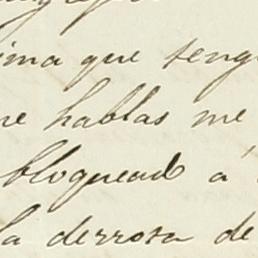 que teng
hablas me
bloquead á
la derrosa de